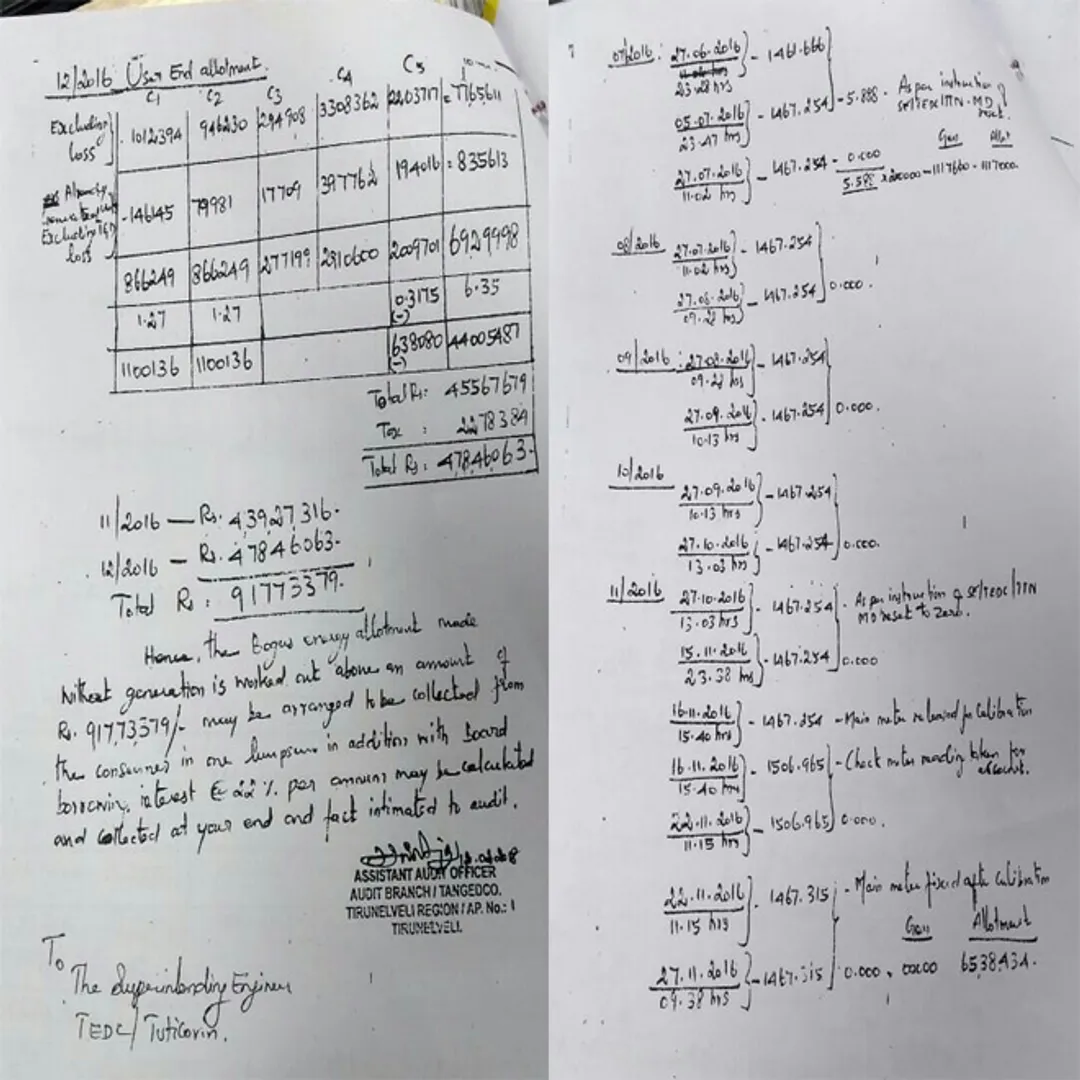 12/2016 User End allotment.
C1 C2 C3 C4 C5
Excluding loss } 1012394 946230 294908 3308362 2203717 = 7765611
Already
Excluding T&D loss
- 146145 79981 17709 397762 194016 = 835613
866249 866249 277199 2910600 2009701 6929998
1.27 1.27 0.3175 (-) 6.35
1100136 1100136 638080 (-) 44005487
Total Rs: 45567679
Tax : 2278384
Total Rs: 47846063-
11/2016 — Rs. 43927316-
12/2016 — Rs. 47846063-
Total Rs: 91773379-
Hence, the Bogus energy allotment made
without generation is worked out above an amount of
Rs. 91773379/- may be arranged to be collected from
the consumer in one lumpsum in addition with Board
borrowing interest @ 22 % per annum may be calculated
and collected at your end and fact intimated to audit.
ASSISTANT AUDIT OFFICER
AUDIT BRANCH / TANGEDCO.
TIRUNELVELI REGION / AP. No.: 1
TIRUNELVELI.
To
The Superintending Engineer
TEDC/ Tuticorin.
07/2016 : 27.06.2016 } - 1461.666
23.28 hrs
05.07.2016 } - 1467.254 - 5.588 - As per instruction
23.47 hrs SE/TEDC/TTN - MD reset.
Gen Allot
27.07.2016 } - 1467.254 - 0.000
11.02 hrs 5.588 x 200000 - 1117600 - 1117000.
08/2016 27.07.2016 } - 1467.254
11.02 hrs
27.08.2016 } - 1467.254 0.000.
09.28 hrs
09/2016 : 27.08.2016 } - 1467.254
09.28 hrs
27.09.2016 } - 1467.254 0.000.
10.13 hrs
10/2016
27.09.2016 } - 1467.254
10.13 hrs
27.10.2016 } - 1467.254 0.000.
13.03 hrs
11/2016 27.10.2016 } - 1467.254 - As per instruction of SE/TEDC/TTN
13.03 hrs MD reset to Zero.
15.11.2016 } - 1467.254 0.000
23.38 hrs
16.11.2016 } - 1467.254 - Main meter released for Calibration
15.40 hrs
16.11.2016 } - 1506.965 - Check meter reading taken for account.
15.40 hrs
22.11.2016 } - 1506.965 0.000.
11.15 hrs
22.11.2016 } - 1467.315 - Main meter fixed after Calibration
11.15 hrs
Gen Allotment
27.11.2016 } - 1467.315 0.000, 00.00 6538434.
09.38 hrs